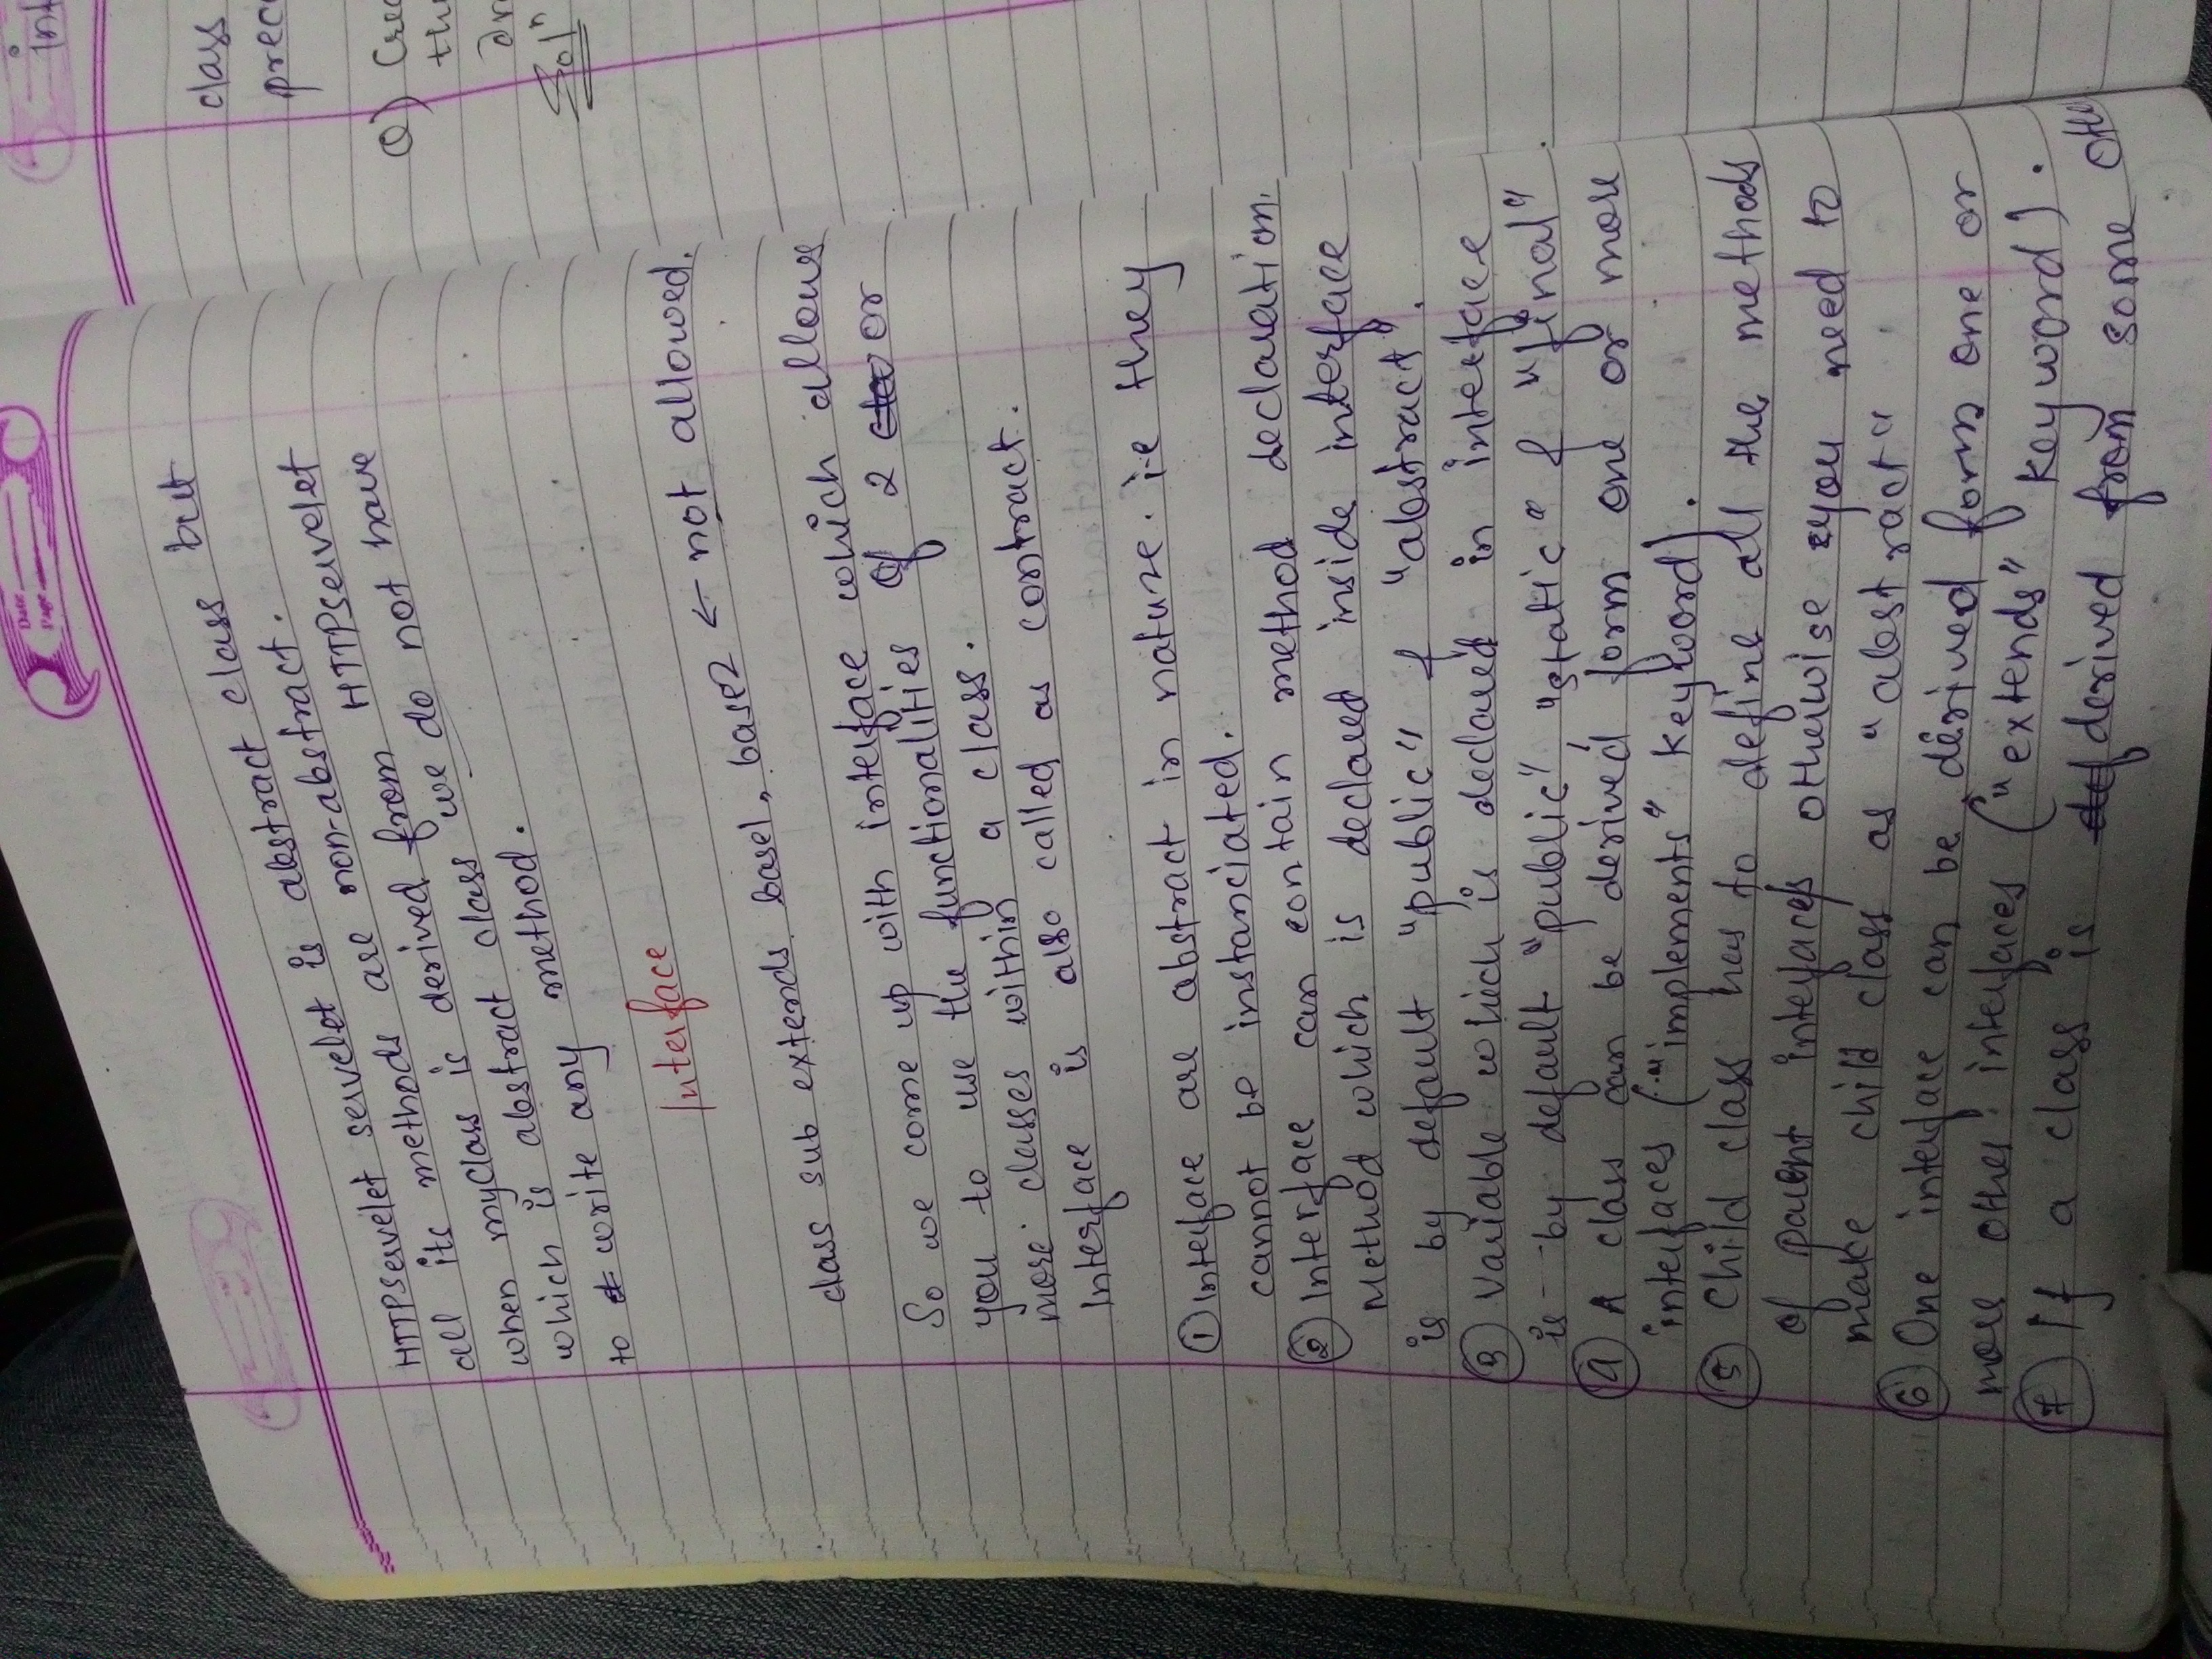 Date
Page
HTTPServelet servelet is abstract class but
all its methods are non-abstract.
when myClass is derived from HTTPServelet
which is abstract class we do not have
to write any method.
Interface
class sub extends base1, base2 ← not allowed.
So we come up with interface which allows
you to use the functionalities of 2 or
more classes within a class.
Interface is also called as contract.
① Interface are abstract in nature. i.e they
cannot be instanciated.
② Interface can contain method declaration.
Method which is declared inside interface
is by default "public" & "abstract".
③ Variable which is declared in interface
is by default "public", "static" & "final".
④ A class can be derived form one or more
interfaces ("implements" keyword).
⑤ Child class has to define all the methods
of parent interfaces otherwise you need to
make child class as "abstract"
⑥ One interface can be derived form one or
more other interfaces ("extends" keyword).
⑦ If a class is derived from some othe
int
class
prec
Q) Crea
the
Solⁿ